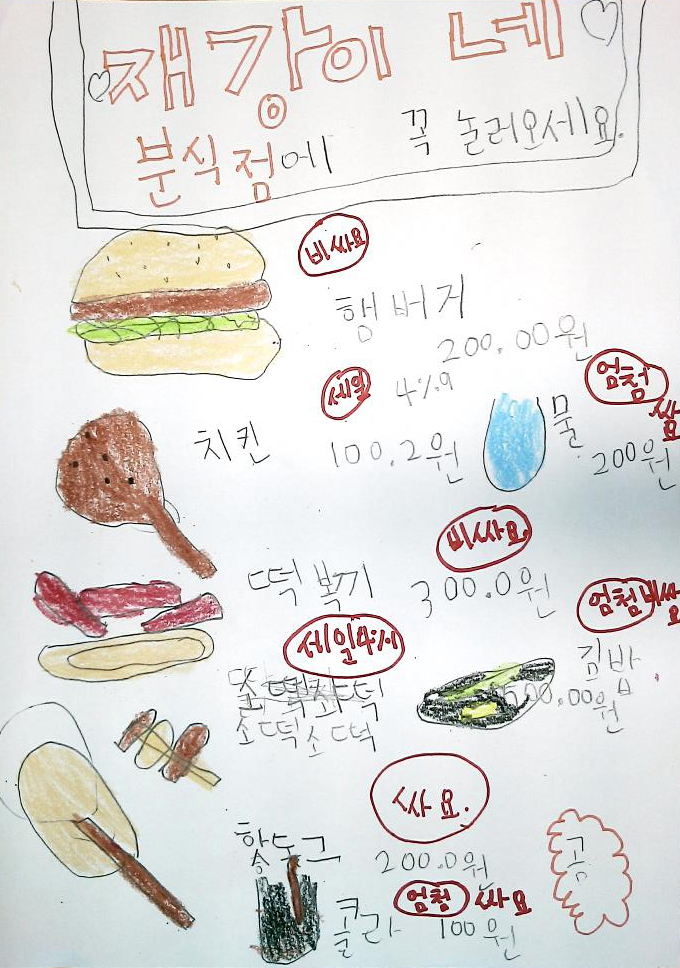 재강이네
분식점에 꼭 놀러오세요.
비싸요
햄버거
200.00원
세일 4%9
엄청 싸요
치킨 100.2원
물
200원
비싸요
떡볶기 300.0원
엄청비싸요
세일4%
김밥
500.00원
소떡소떡
싸요.
핫도그 200.0원
엄청 싸요
콜라 100원